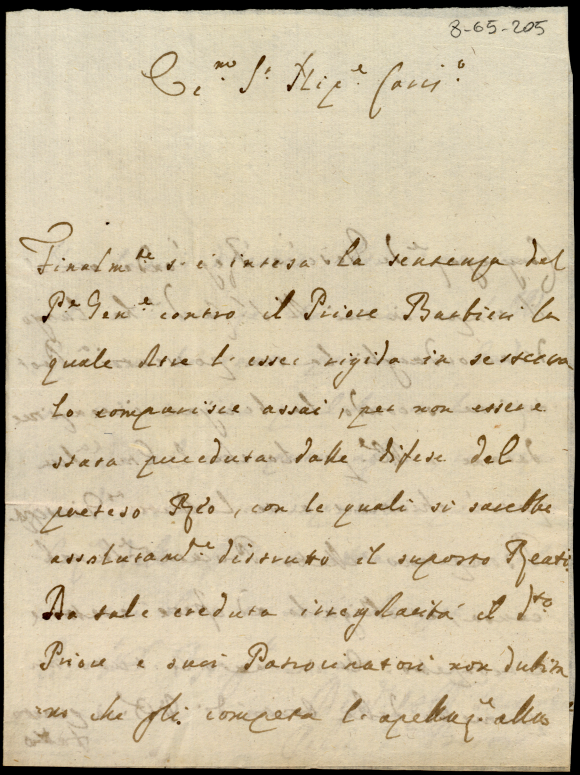 8-65-205
C.mo Sr. Nip.e Cariss.o
Finalm.te s'è intesa la sentenza del
P.e Gen.e contro il Priore Barbieri la
quale oltre l'esser rigida in se stessa
lo comparisce assai, per non essere
stata preceduta dalle difese del
preteso Reo, con le quali si sarebbe
assolutam.te distrutto il suposto Reato.
Da tale creduta irregolarità il d.to
Priore e suoi Patrocinatori non dubita
no che gli competa l'apellaz.e alla